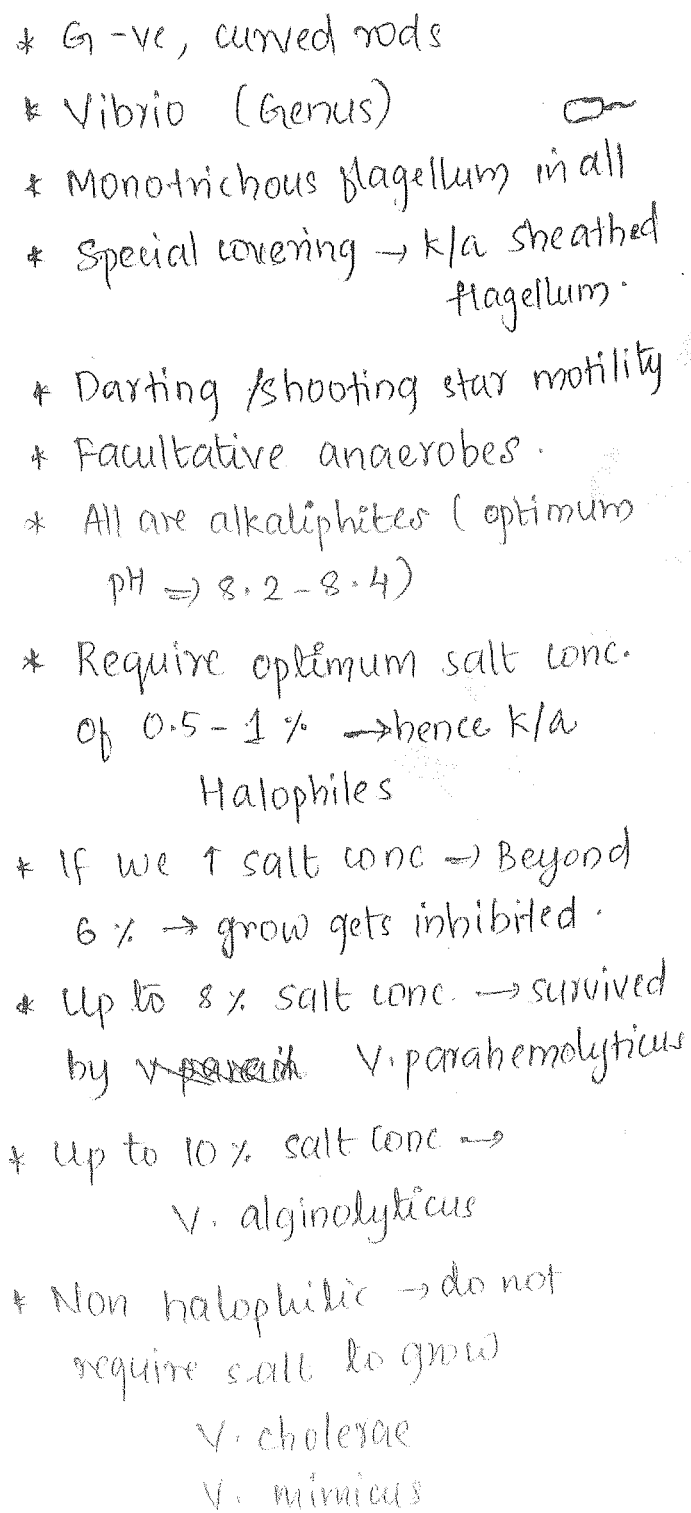 * G -ve, curved rods
* Vibrio (Genus)
* Monotrichous flagellum in all
* Special covering → k/a sheathed
flagellum.
* Darting /shooting star motility
* Facultative anaerobes.
* All are alkaliphites ( optimum
pH ⇒ 8.2-8.4)
* Require optimum salt conc.
of 0.5-1 % → hence k/a
Halophiles
* If we ↑ salt conc ⇒ Beyond
6 % → grow gets inhibited.
* Up to 8 % salt conc. → survived
by V. parahemolyticus
* Up to 10 % salt conc →
V. alginolyticus
* Non halophilic → do not
require salt to grow
V. cholerae
V. mimicus